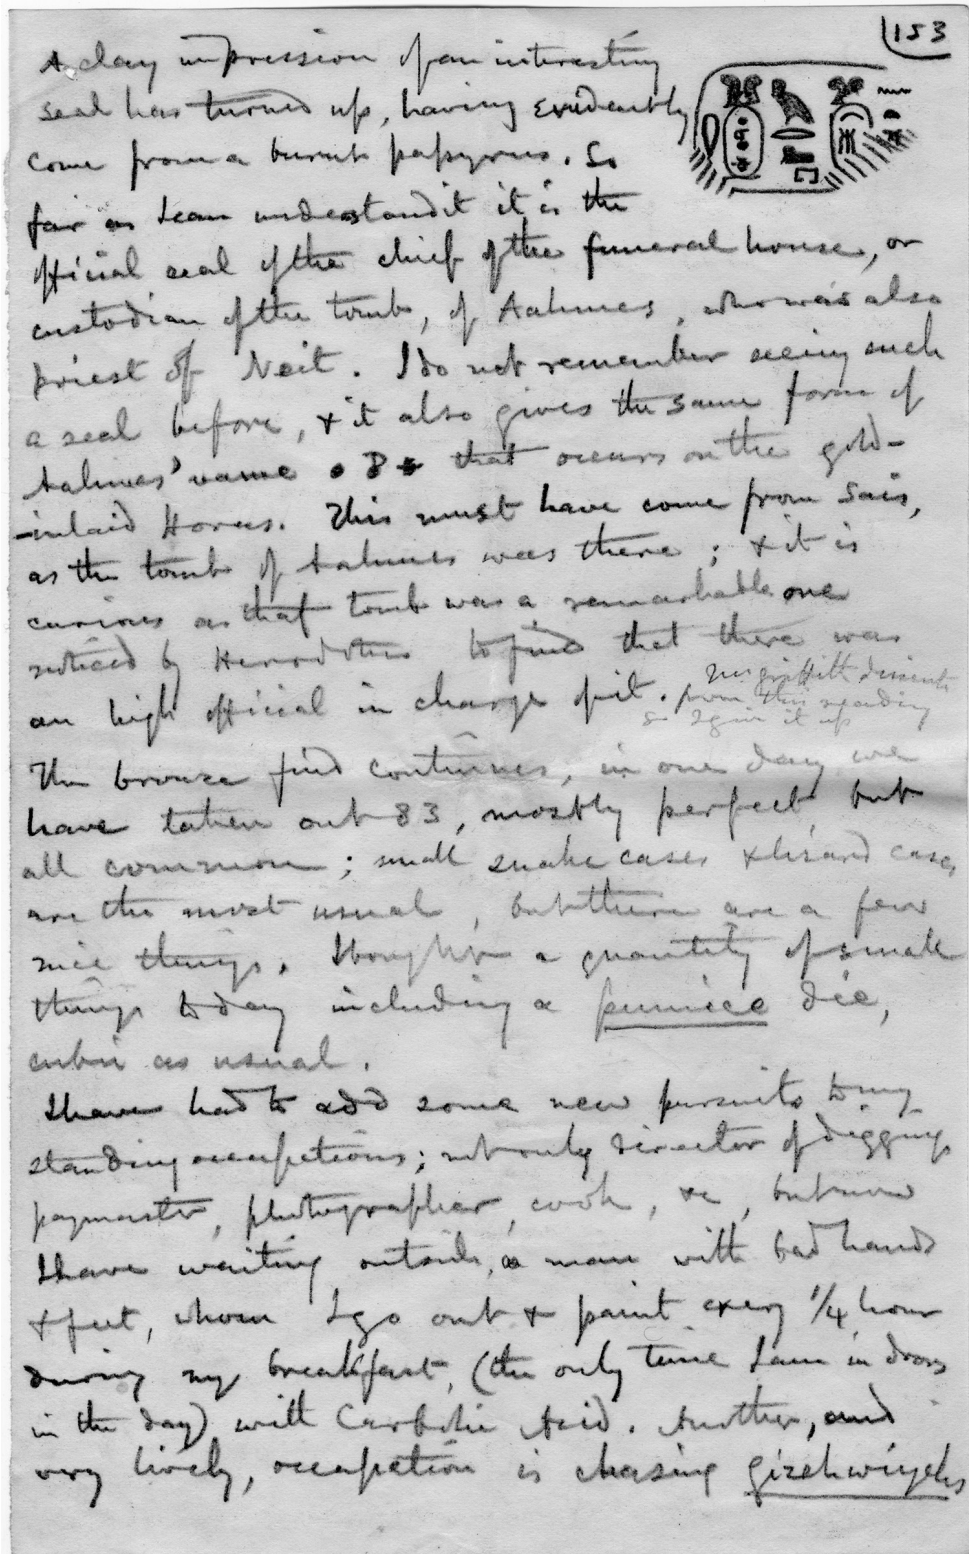 153
A clay impression of an interesting
seal has turned up, having evidently
come from a burnt papyrus. So
far as I can understand it it is the
official seal of the chief of the funeral house, or
custodian of the tomb, of Aahmes, who was also
priest of Neit. I do not remember seeing such
a seal before, & it also gives the same form of
Aahmes' name that occurs on the gold-
-inlaid Horus. This must have come from Sais,
as the tomb of Aahmes was there; & it is
curious as that tomb was a remarkable one
noticed by Herodotus to find that there was
an high official in charge of it. Mr Griffith dissents
from this reading
so I give it up
The bronze find continues, in one day we
have taken out 83, mostly perfect but
all common; small snake cases & lizard cases
are the most usual, but there are a few
nice things. I bought a quantity of small
things today including a pumice die,
cubic as usual.
I have had to add some new pursuits to my
standing occupations; not only director of diggings,
paymaster, photographer, cook, &c, but now
I have waiting outside, a man with bad hands
& feet, whom I go out & paint every 1/4 hour
during my breakfast, (the only time I am in doors
in the day) with Carbolic Acid. Another, and
very lively, occupation is chasing gizehwiyehs